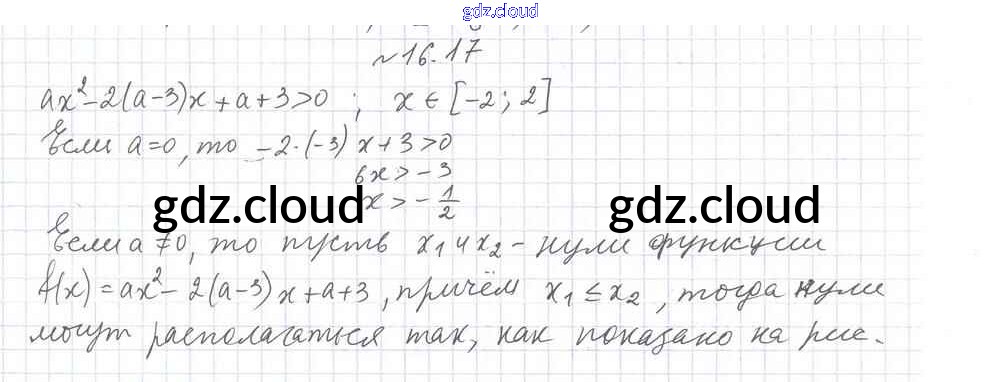 gdz.cloud
~16.17
ax²-2(a-3)x+a+3>0 ; x∈[-2; 2]
Если a=0, то -2·(-3)x+3>0
6x>-3
x>-1/2
gdz.cloud gdz.cloud
Если a≠0, то пусть x₁ и x₂ - нули функции
f(x)=ax²-2(a-3)x+a+3, причём x₁≤x₂, тогда нули
могут располагаться так, как показано на рис.